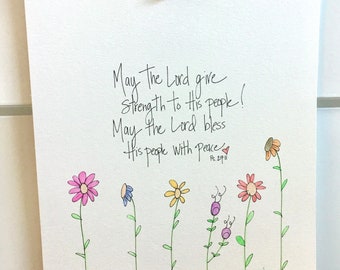 May the Lord give
strength to His people!
May the Lord bless
His people with peace
Ps. 29:11